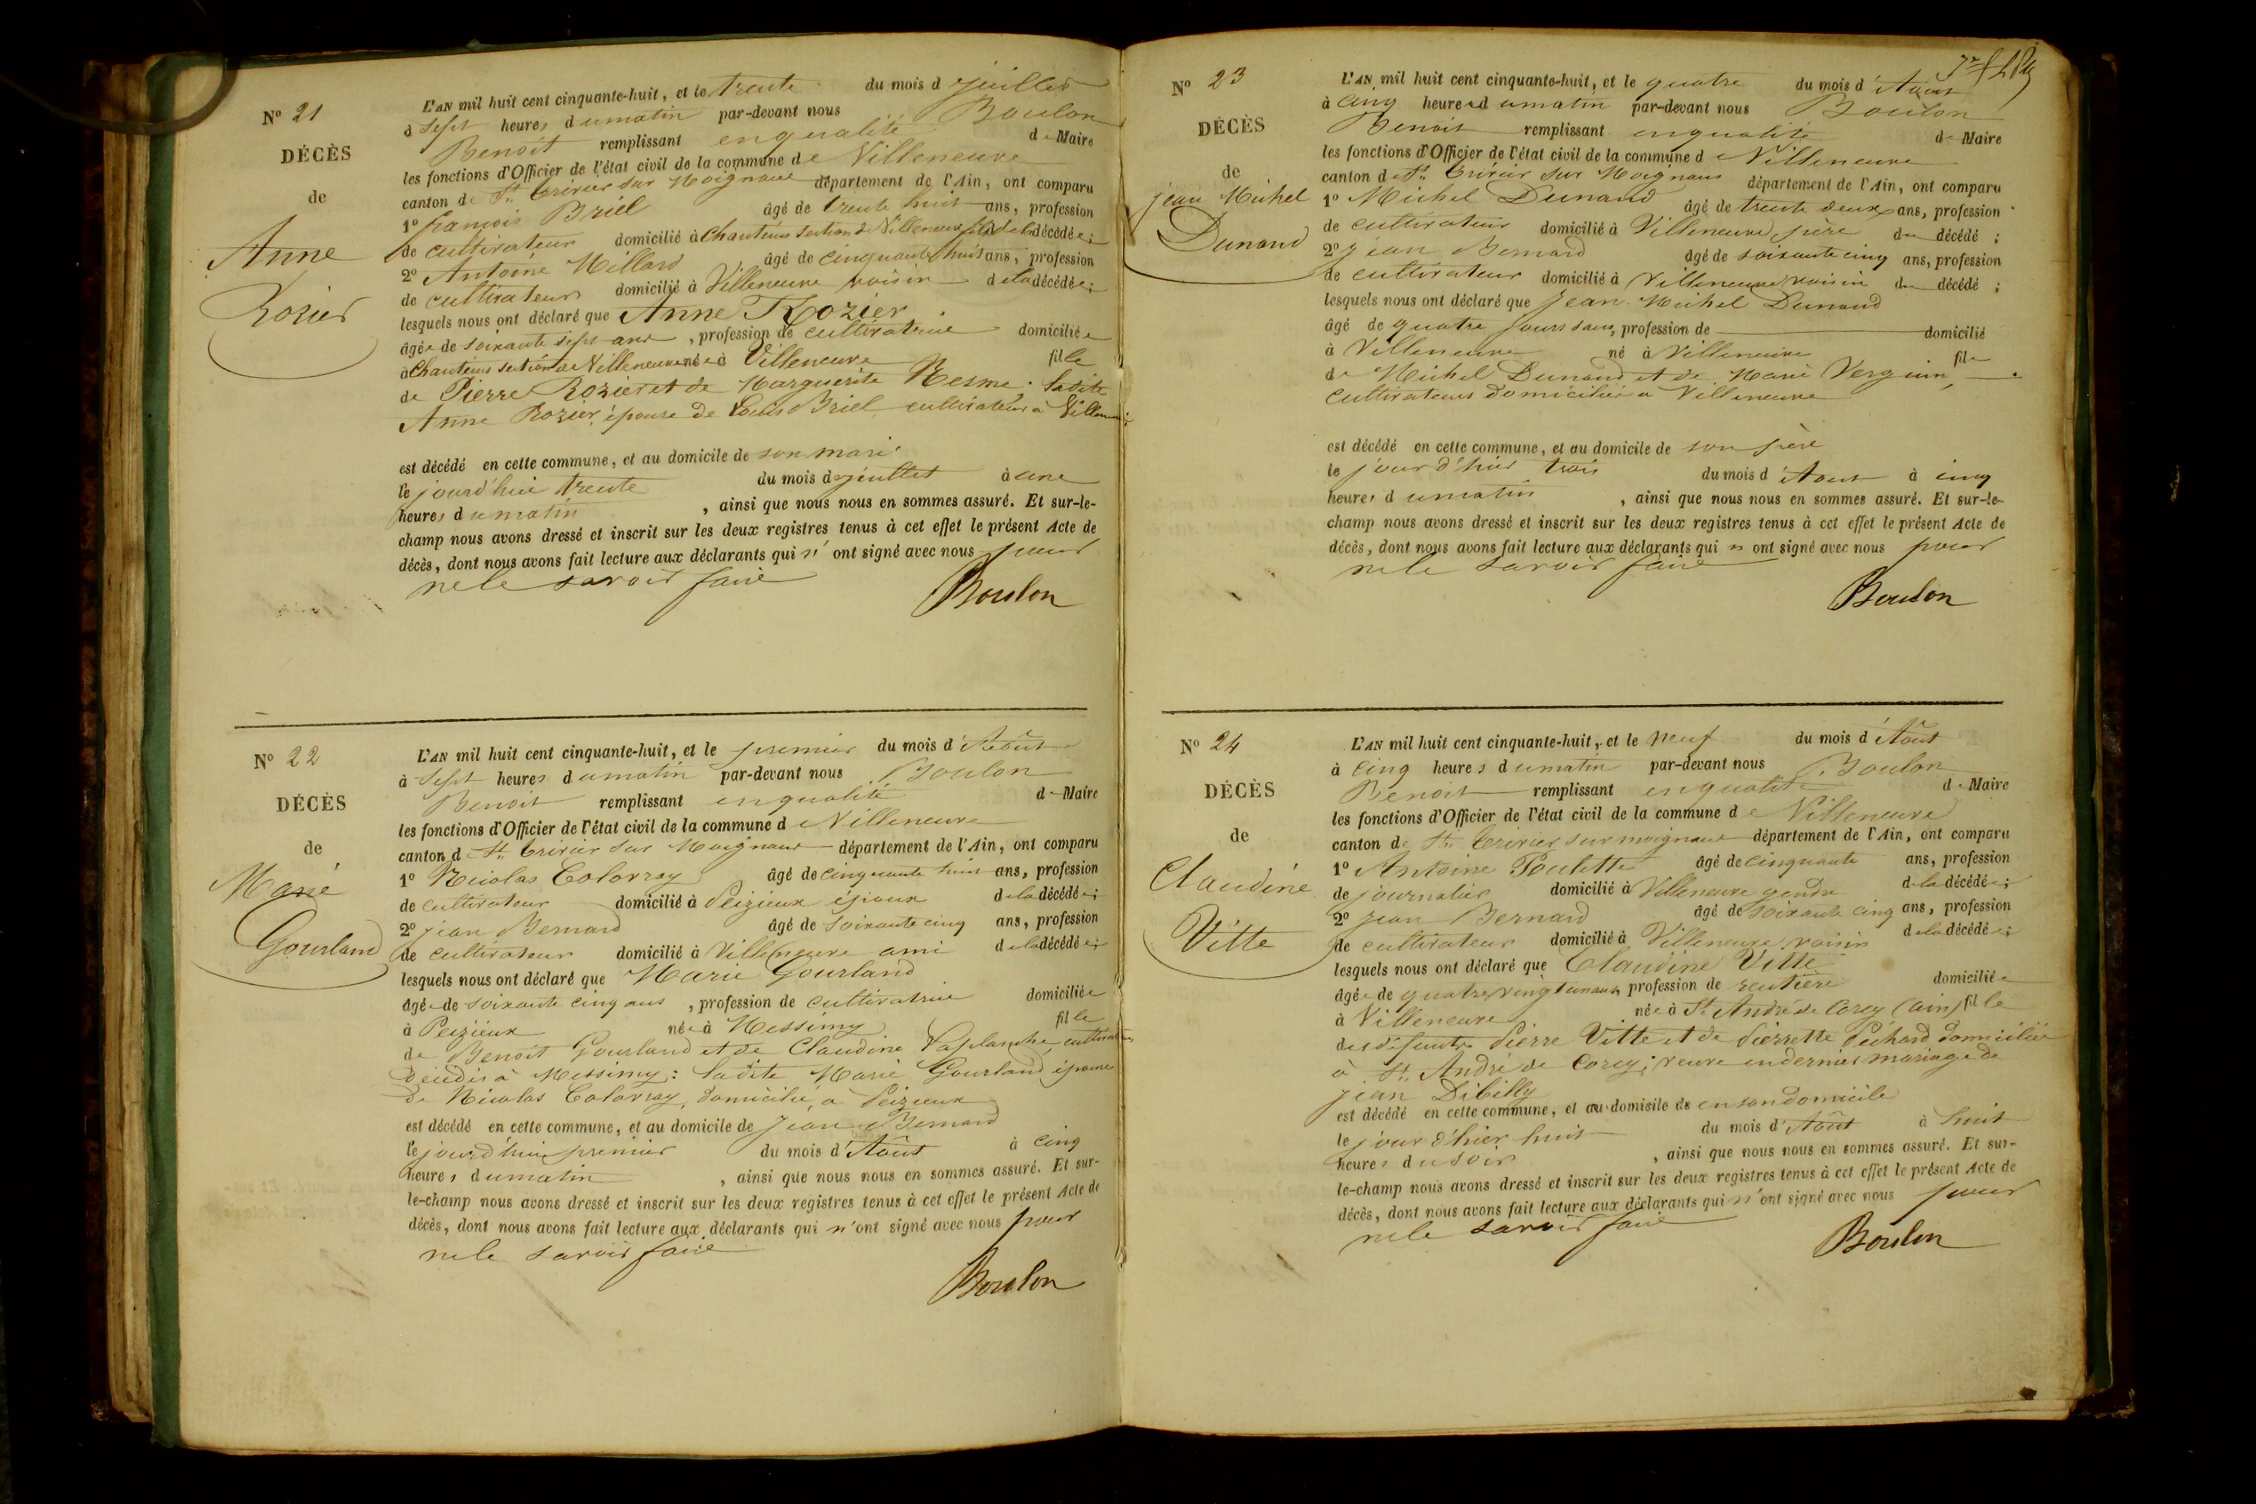 Nº 21
DÉCÈS
de
Anne
Rozier
L'AN mil huit cent cinquante-huit, et le trente du mois d juillet
à Sept heures d u matin par-devant nous Boulon
Benoit remplissant en qualité d e Maire
les fonctions d'Officier de l'état civil de la commune d e Villeneuve
canton de St Trivier sur Moignans département de l'Ain, ont comparu
1º francois Briel âgé de trente huit ans, profession
de cultivateur domicilié à Chanteins section de Villeneuve fils de la décédée;
2º Antoine Millard âgé de cinquante huit ans, profession
de cultivateur domicilié à Villeneuve voisin de la décédée;
lesquels nous ont déclaré que Anne Rozier
âgée de soixante sept ans, profession de cultivatrice domiciliée
à Chanteins section de Villeneuve née à Villeneuve fille
de Pierre Rozier et de Marguerite Nesme. Ladite
Anne Rozier, épouse de Louis Briel, cultivateur à Villeneuve
est décédé en cette commune, et au domicile de son mari
le jourd'hui trente du mois de juillet à une
heures d u matin, ainsi que nous nous en sommes assuré. Et sur-le-
champ nous avons dressé et inscrit sur les deux registres tenus à cet effet le présent Acte de
décès, dont nous avons fait lecture aux déclarants qui n'ont signé avec nous pour
ne le savoir faire
Boulon
Nº 22
DÉCÈS
de
Marie
Gourland
L'AN mil huit cent cinquante-huit, et le premier du mois d'Août
à Sept heures d u matin par-devant nous Boulon
Benoit remplissant en qualité d e Maire
les fonctions d'Officier de l'état civil de la commune d e Villeneuve
canton d e St Trivier sur Moignans département de l'Ain, ont comparu
1º Nicolas Colovray âgé de cinquante huit ans, profession
de cultivateur domicilié à Peizieux époux de la décédée;
2º jean Bernard âgé de soixante cinq ans, profession
de cultivateur domicilié à Villeneuve ami de la décédée;
lesquels nous ont déclaré que Marie Gourland
âgée de soixante cinq ans, profession de cultivatrice domiciliée
à Peizieux née à Messimy fille
de Benoit Gourland et de Claudine Laplanche, cultivateurs
décédés à Messimy: ladite Marie Gourland épouse
de Nicolas Colovray, domicilié à Peizieux
est décédé en cette commune, et au domicile de Jean Bernard
le jourd'hui premier du mois d'Août à cinq
heures d u matin, ainsi que nous nous en sommes assuré. Et sur-
le-champ nous avons dressé et inscrit sur les deux registres tenus à cet effet le présent Acte de
décès, dont nous avons fait lecture aux déclarants qui n'ont signé avec nous pour
ne le savoir faire
Boulon
Nº 23
DÉCÈS
de
jean Michel
Dunand
L'AN mil huit cent cinquante-huit, et le quatre du mois d'Août
à cinq heures d u matin par-devant nous Boulon
Benoit remplissant en qualité d e Maire
les fonctions d'Officier de l'état civil de la commune d e Villeneuve
canton de St Trivier sur Moignans département de l'Ain, ont comparu
1º Michel Dunand âgé de trente deux ans, profession
de cultivateur domicilié à Villeneuve, père du décédé;
2º jean Bernard âgé de soixante cinq ans, profession
de cultivateur domicilié à Villeneuve voisin du décédé;
lesquels nous ont déclaré que Jean Michel Dunand
âgé de quatre jours sans, profession de domicilié
à Villeneuve né à Villeneuve fils
de Michel Dunand et de Marie Verguin,
cultivateurs domiciliés à Villeneuve
est décédé en cette commune, et au domicile de son père
le jour d'hier trois du mois d'Aout à cinq
heures d u matin, ainsi que nous nous en sommes assuré. Et sur-le-
champ nous avons dressé et inscrit sur les deux registres tenus à cet effet le présent Acte de
décès, dont nous avons fait lecture aux déclarants qui n ont signé avec nous pour
ne le savoir faire
Boulon
Nº 24
DÉCÈS
de
Claudine
Vitte
L'AN mil huit cent cinquante-huit, et le neuf du mois d'Août
à cinq heures d u matin par-devant nous Boulon
Benoit remplissant en qualité d e Maire
les fonctions d'Officier de l'état civil de la commune d e Villeneuve
canton de St Trivier sur moignans département de l'Ain, ont comparu
1º Antoine Poulette âgé de cinquante ans, profession
de journalier domicilié à Villeneuve gendre de la décédée;
2º jean Bernard âgé de soixante cinq ans, profession
de cultivateur domicilié à Villeneuve, voisin de la décédée;
lesquels nous ont déclaré que Claudine Vitte
âgée de quatre vingt un ans, profession de rentière domiciliée
à Villeneuve née à St André de Corcy (ain) fille
des défunts Pierre Vitte et de Pierrette Péchard domiciliés
à St André de Corcy; veuve en dernier mariage de
jean Dibilly
est décédé en cette commune, et au domicile de en son domicile
le jour d'hier huit du mois d'Août à huit
heures d u soir, ainsi que nous nous en sommes assuré. Et sur-
le-champ nous avons dressé et inscrit sur les deux registres tenus à cet effet le présent Acte de
décès, dont nous avons fait lecture aux déclarants qui n'ont signé avec nous pour
ne le savoir faire
Boulon